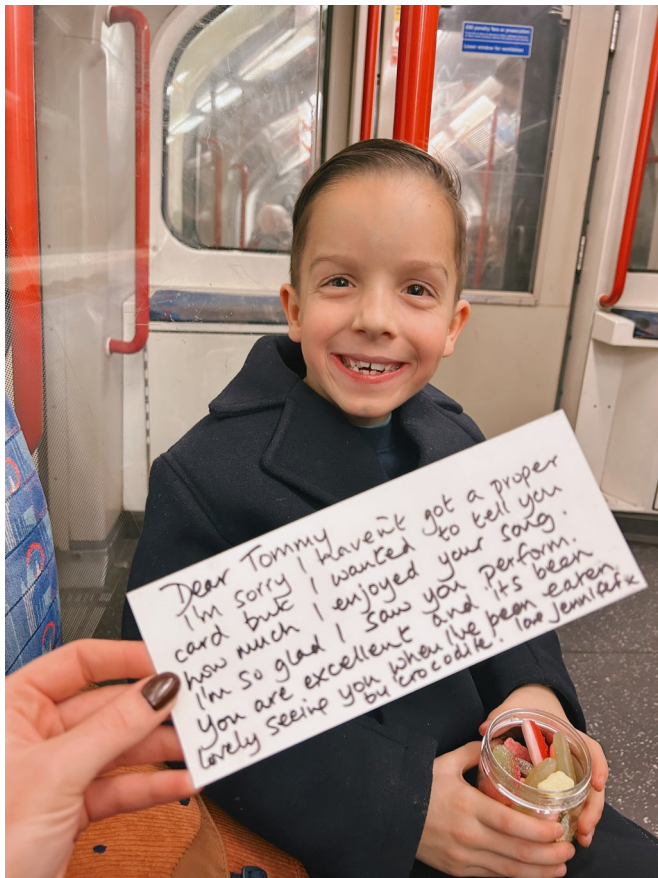 £80 penalty fare or prosecution
Lower window for ventilation
Dear Tommy
I'm sorry I haven't got a proper
card but I wanted to tell you
how much I enjoyed your song.
I'm so glad I saw you perform.
You are excellent and it's been
lovely seeing you when I've been eaten
by crocodile! love Jennifer x